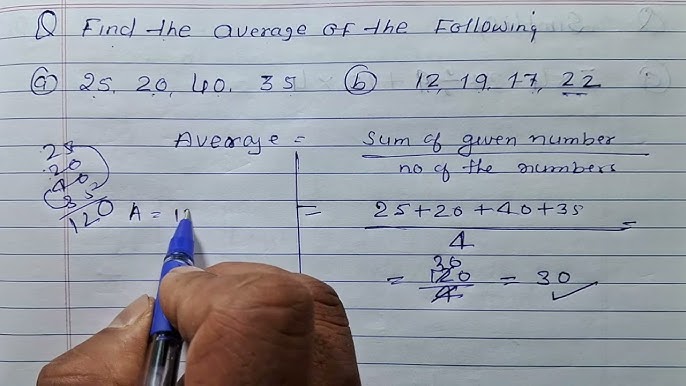 Q Find the average of the following
(a) 25, 20, 40, 35 (b) 12, 19, 17, 22
Average = Sum of given number
no of the numbers
25
20
40
35
120
A = 12
= 25+20+40+35
4
= 120 = 30 ✓
30
4